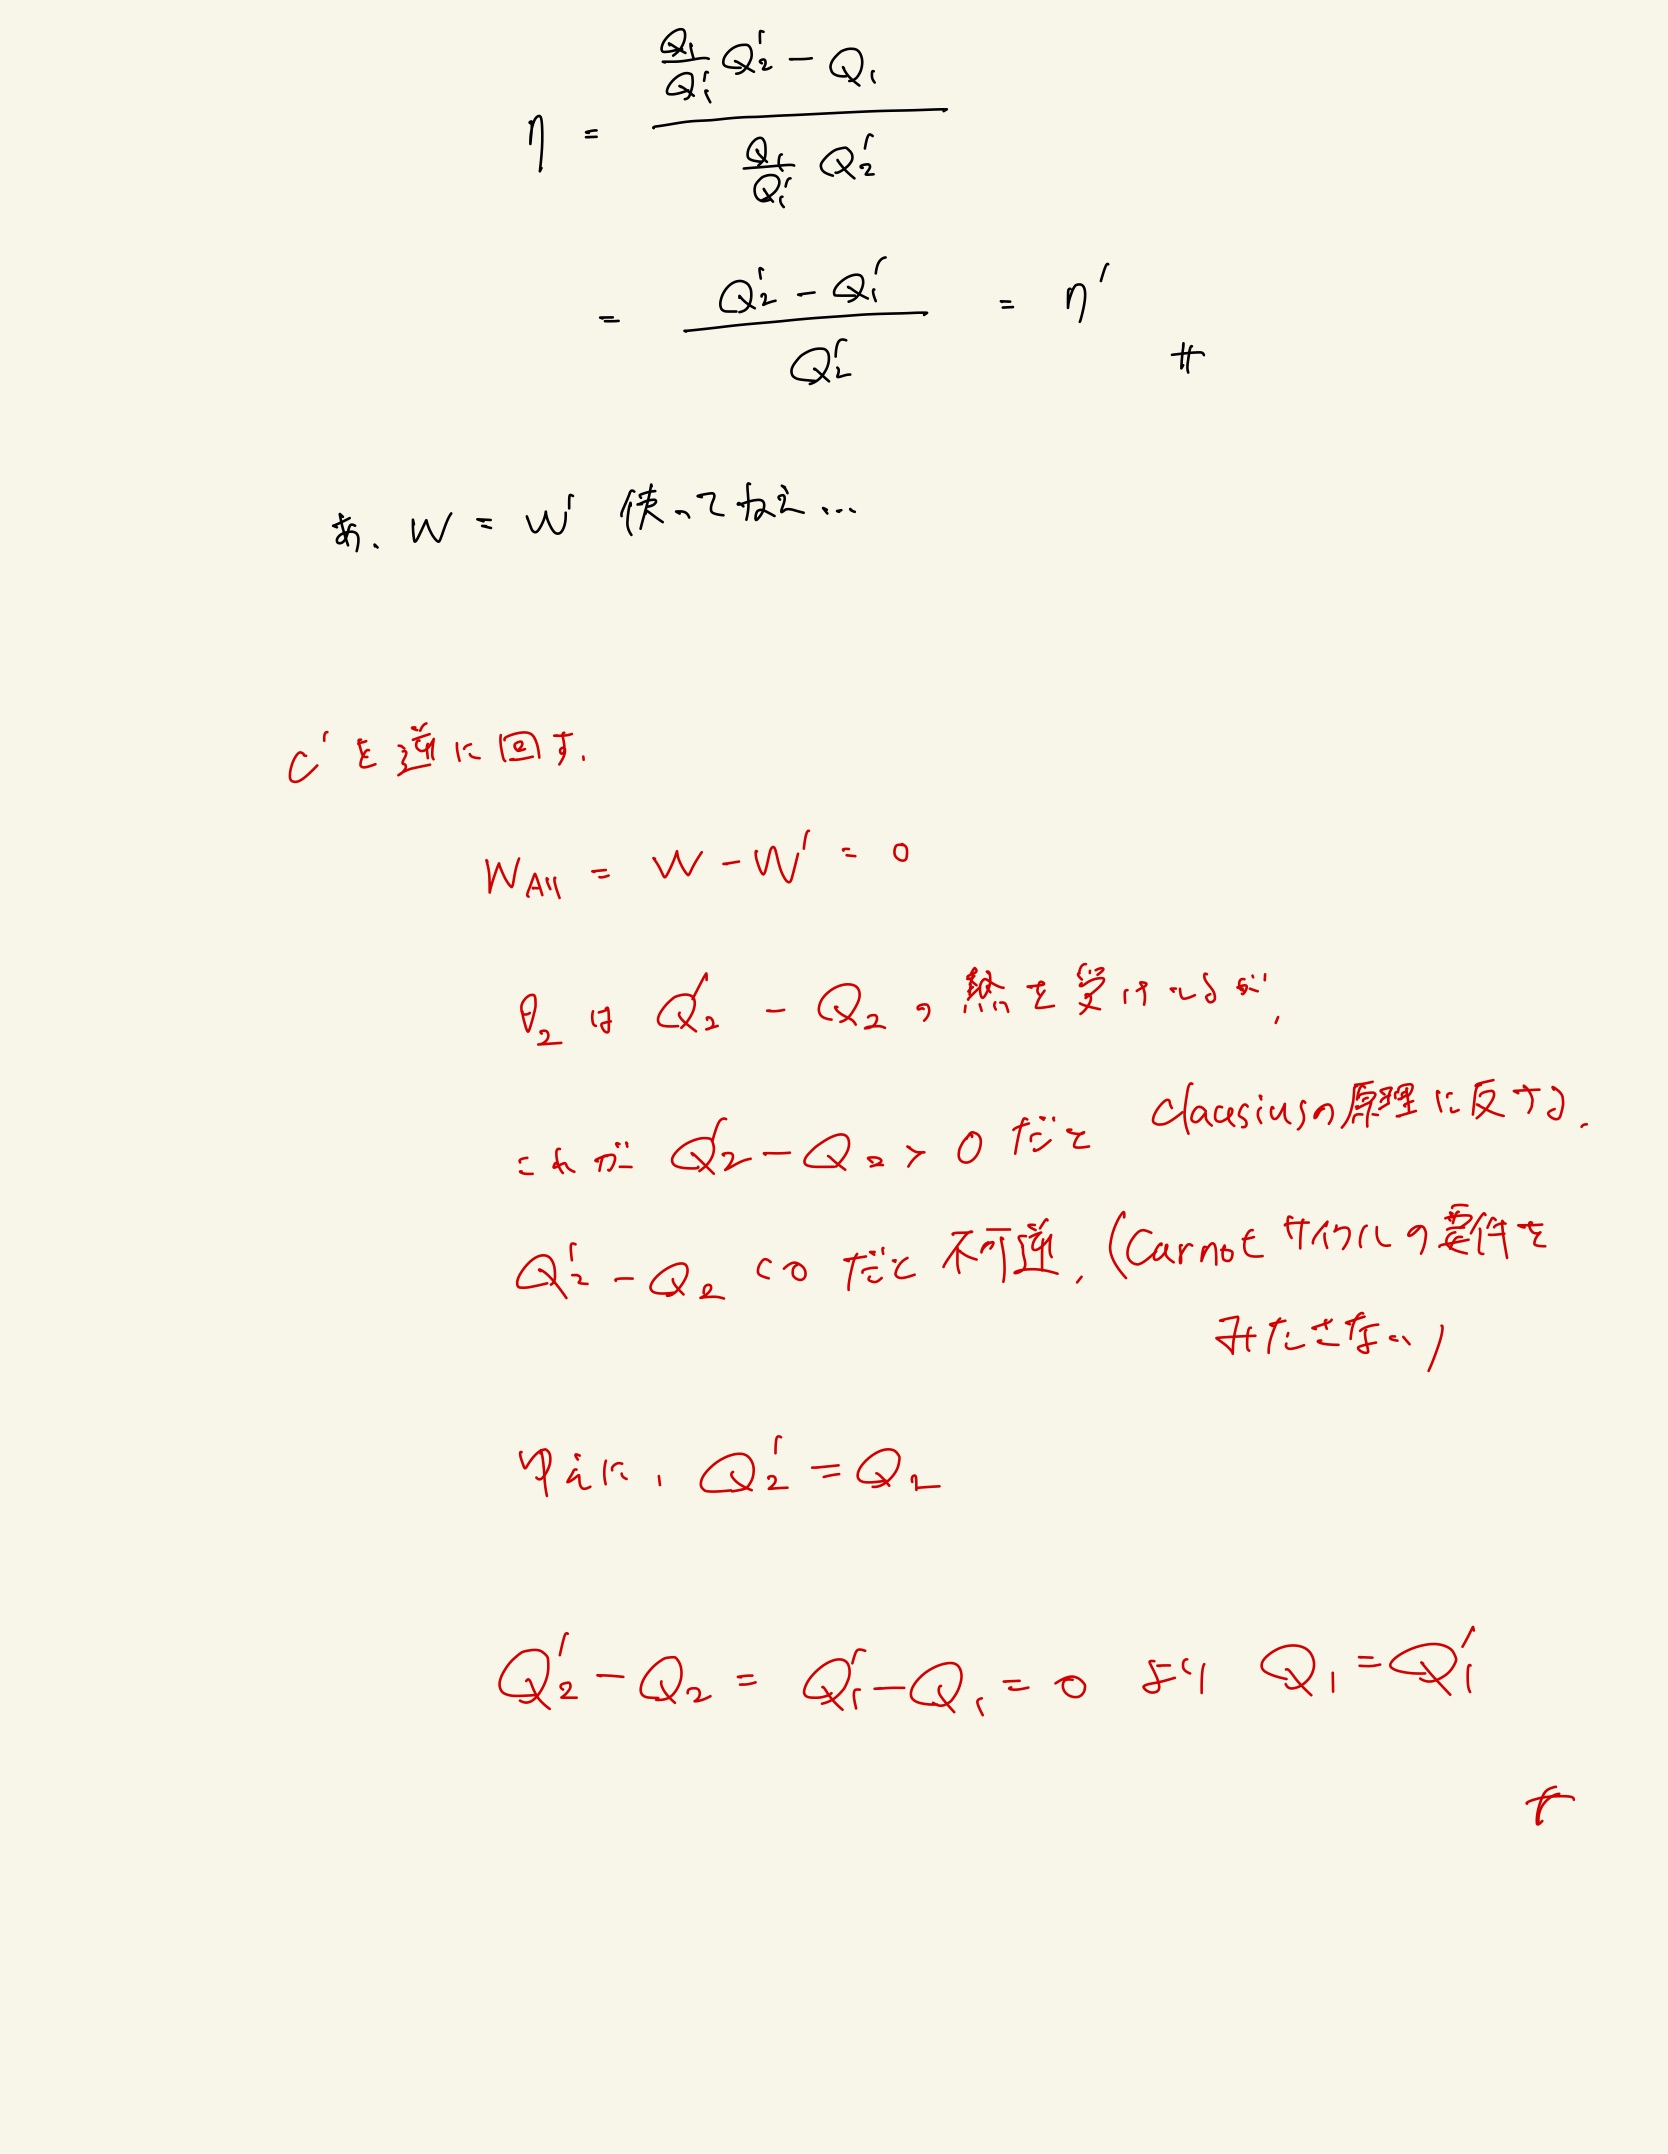 η = (Q₁/Q₁′ Q₂′ − Q₁) / (Q₁/Q₁′ Q₂′)
= (Q₂′ − Q₁′) / Q₂′ = η′ #
あ、W = W′ 使ってねえ…
C′を逆に回す.
W_All = W − W′ = 0
θ₂ は Q₂′ − Q₂ の熱を受けとるが,
これが Q₂′ − Q₂ > 0 だと Clausiusの原理に反する.
Q₂′ − Q₂ < 0 だと 不可逆. (Carnot サイクルの要件を
みたさない)
ゆえに, Q₂′ = Q₂
Q₂′ − Q₂ = Q₁′ − Q₁ = 0 より Q₁ = Q₁′